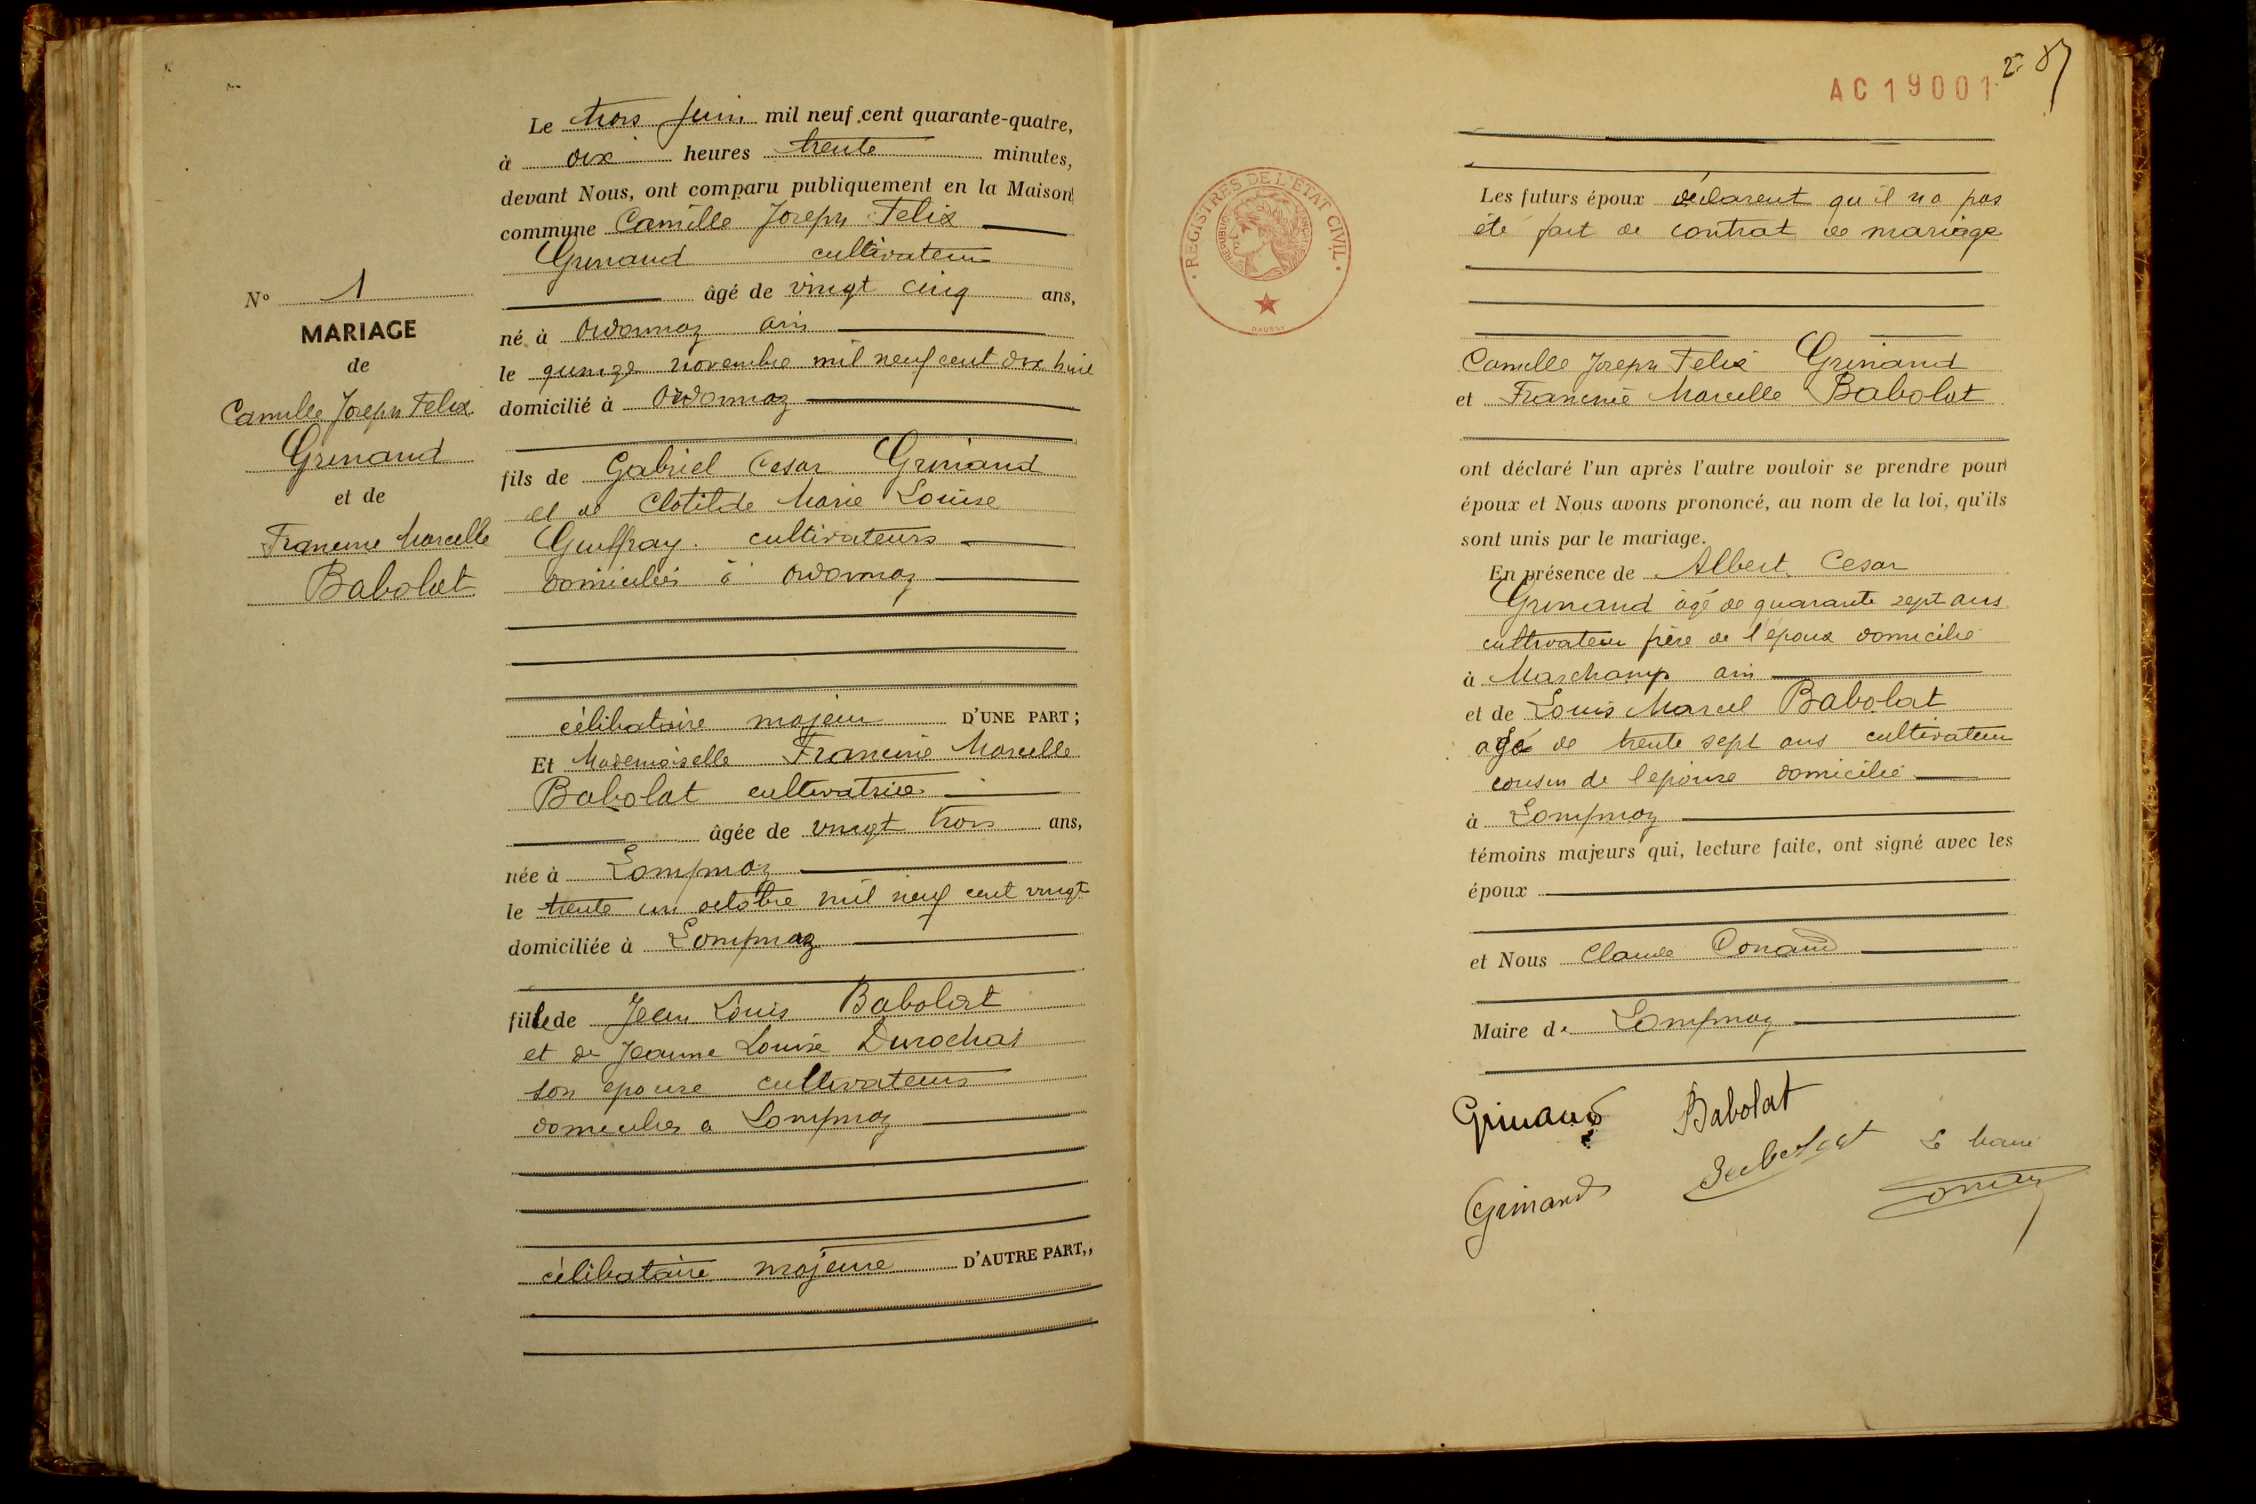 Le trois juin mil neuf cent quarante-quatre,
à dix heures trente minutes,
devant Nous, ont comparu publiquement en la Maison
commune Camille Joseph Felix
Grinand cultivateur
âgé de vingt cinq ans,
né à Ordonnaz ain
le quinze novembre mil neuf cent dix huit
domicilié à Ordonnaz
fils de Gabriel Cesar Grinand
et de Clotilde Marie Louise
Guffray cultivateurs
domiciliés à Ordonnaz
célibataire majeur D'UNE PART ;
Et Mademoiselle Francine Marcelle
Babolat cultivatrice
âgée de vingt trois ans,
née à Lompnaz
le trente un octobre mil neuf cent vingt
domiciliée à Lompnaz
fille de Jean Louis Babolat
et de Jeanne Louise Durochat
son epouse cultivateurs
domiciliés a Lompnaz
célibataire majeure D'AUTRE PART,,
N° 1
MARIAGE
de
Camille Joseph Felix
Grinand
et de
Francine Marcelle
Babolat
AC19001
2 87
REGISTRES DE L'ETAT CIVIL
Les futurs époux déclarent qu'il n'a pas
été fait de contrat de mariage
Camille Joseph Felix Grinand
et Francine Marcelle Babolat
ont déclaré l'un après l'autre vouloir se prendre pour
époux et Nous avons prononcé, au nom de la loi, qu'ils
sont unis par le mariage.
En présence de Albert Cesar
Grinand âgé de quarante sept ans
cultivateur frère de l'époux domicilié
à Marchamp ain
et de Louis Marcel Babolat
agé de trente sept ans cultivateur
cousin de l'epouse domicilié
à Lompnaz
témoins majeurs qui, lecture faite, ont signé avec les
époux
et Nous Claude Conand
Maire de Lompnaz
Grinand Babolat
Grinand Babolat Le Maire